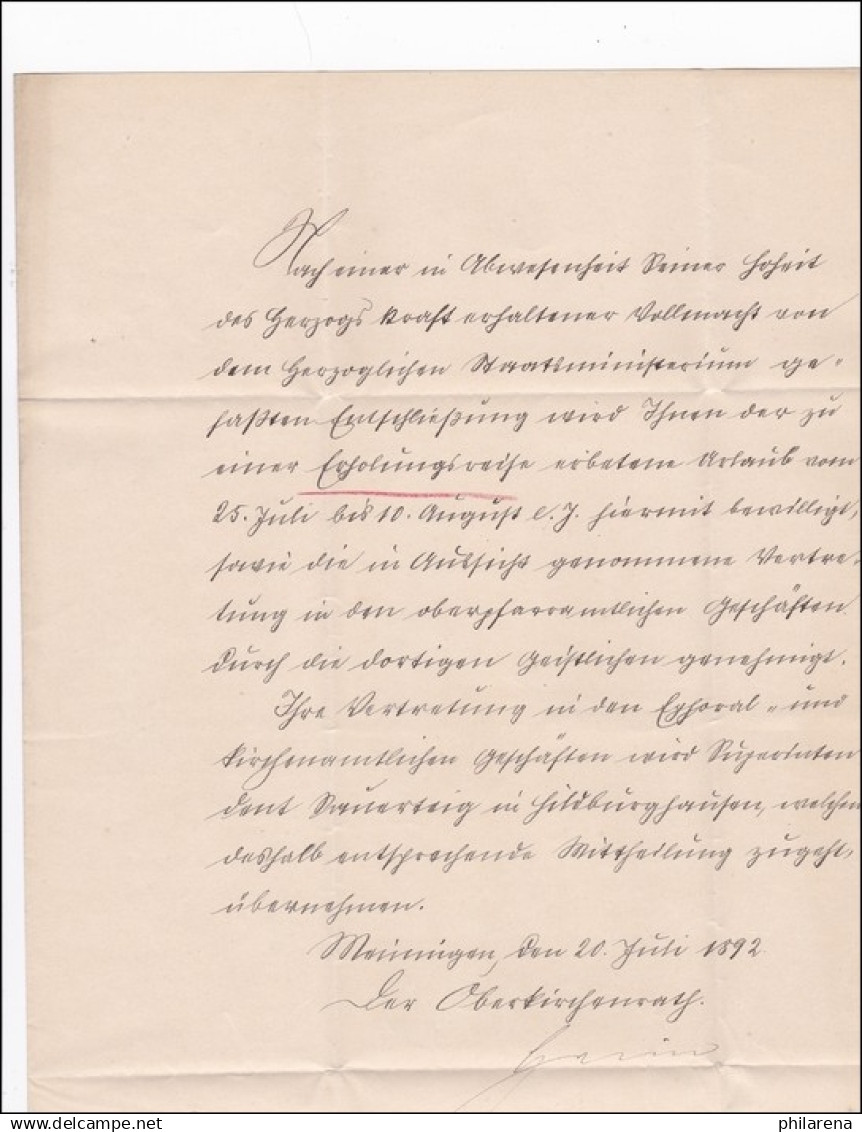 Nach einer in Abwesenheit Seiner Hoheit
des Herzogs kraft erhaltener Vollmacht von
dem Herzoglichen Staatsministerium ge-
faßten Entschließung wird Ihnen der zu
einer Erholungsreise erbetene Urlaub vom
25. Juli bis 10. August l. J. hiermit bewilligt,
sowie die in Aussicht genommene Vertre-
tung in den oberpfarramtlichen Geschäften
durch die dortigen Geistlichen genehmigt.
Ihre Vertretung in den Ephoral- und
kirchenamtlichen Geschäften wird Superinten
dent Sauerteig in Hildburghausen, welchem
deshalb entsprechende Mittheilung zugeht,
übernehmen.
Meiningen, den 20. Juli 1892
Der Oberkirchenrath.
www.delcampe.net
philarena